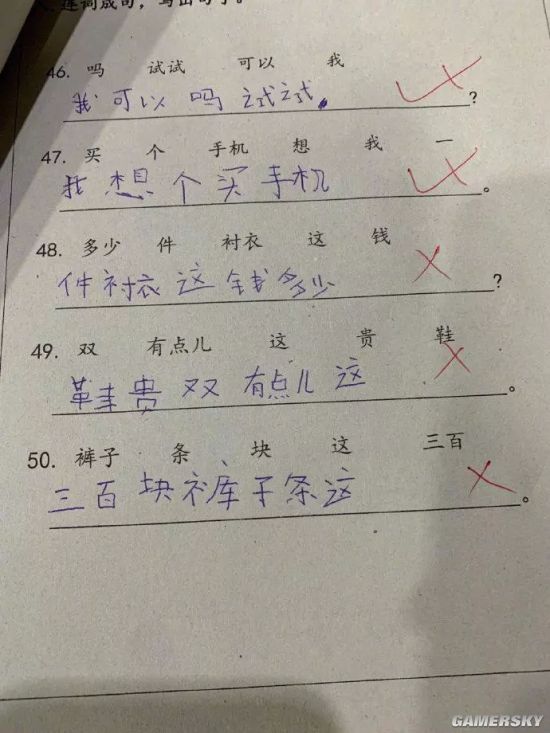 连词成句，写出句子。
46. 吗 试试 可以 我
我可以吗试试。?
47. 买 个 手机 想 我 一
我想个买手机。
48. 多少 件 衬衣 这 钱
件衬衣这钱多少?
49. 双 有点儿 这 贵 鞋
鞋贵双有点儿这。
50. 裤子 条 块 这 三百
三百块裤子条这。
GAMERSKY